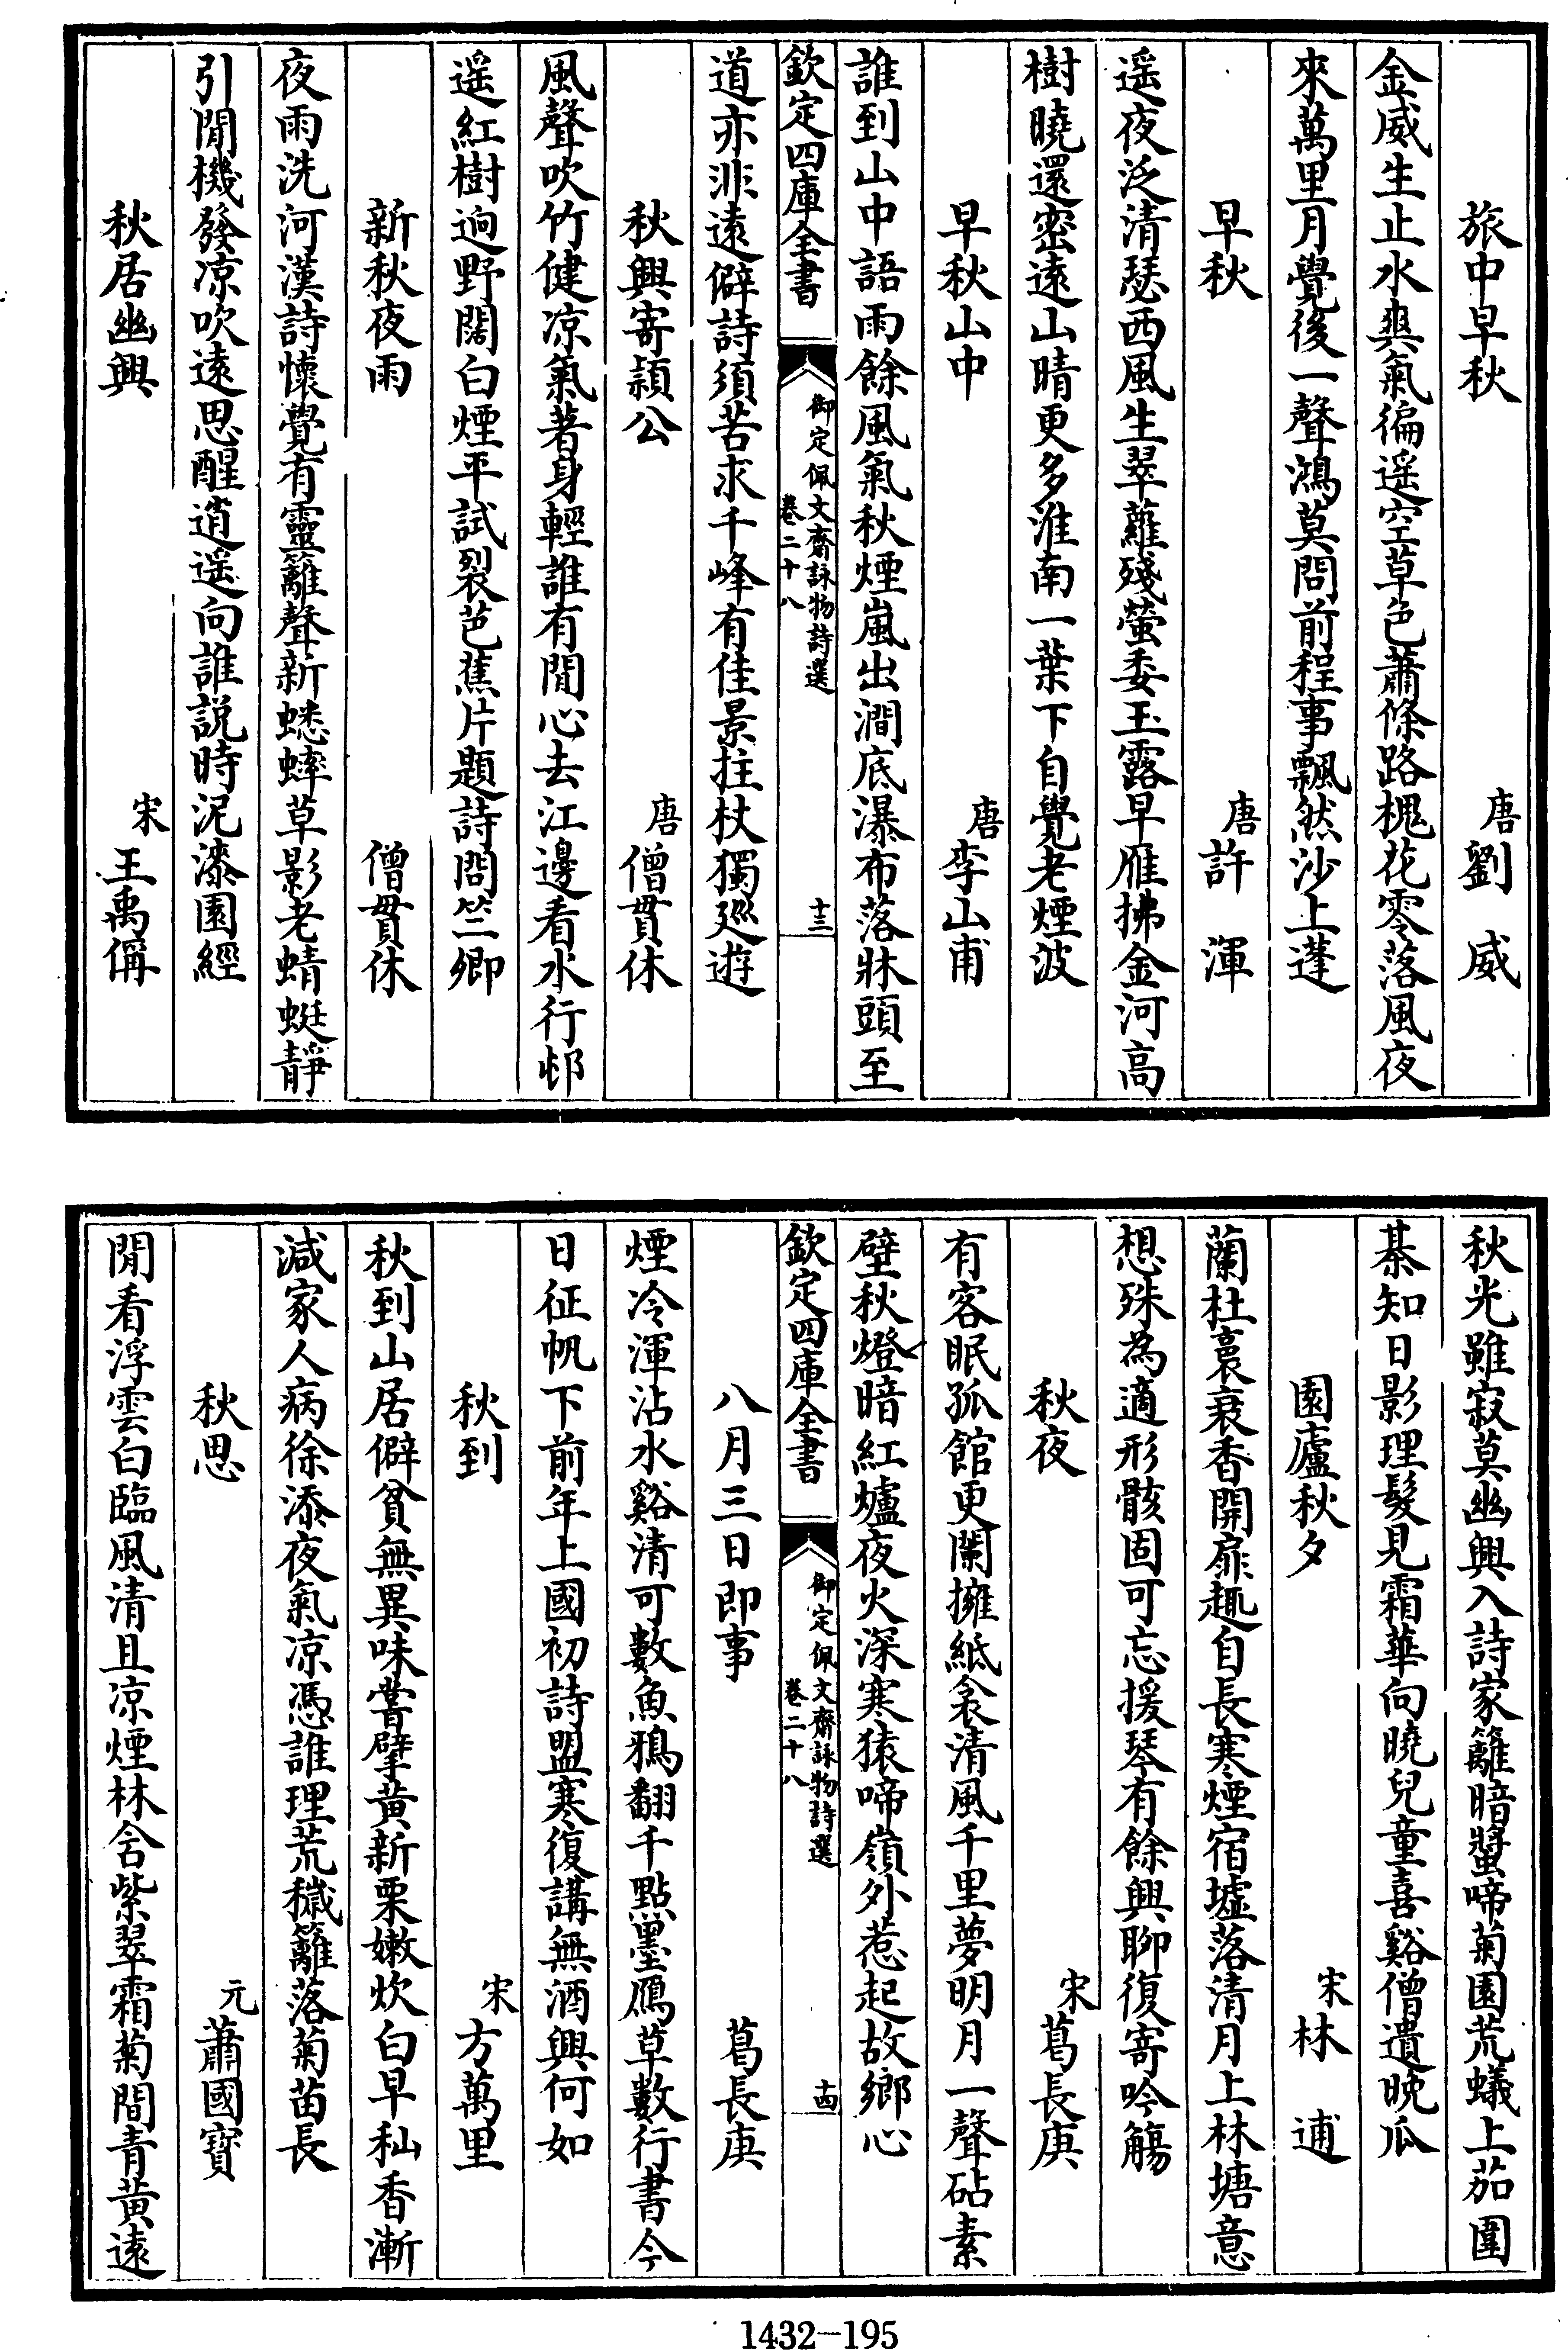 旅中早秋　唐劉威
金威生止水爽氣徧遥空草色蕭條路槐花零落風夜
來萬里月覺後一聲鴻莫問前程事飄然沙上蓬
早秋　唐許渾
遥夜泛清瑟西風生翠蘿殘螢委玉露早雁拂金河高
樹曉還密遠山晴更多淮南一葉下自覺老煙波
早秋山中　唐李山甫
誰到山中語雨餘風氣秋煙嵐出澗底瀑布落牀頭至
欽定四庫全書　御定佩文齋詠物詩選　卷二十八　十三
道亦非遠僻詩須苦求千峰有佳景拄杖獨廵遊
秋興寄頴公　唐僧貫休
風聲吹竹健凉氣著身輕誰有閒心去江邊看水行邨
遥紅樹逈野闊白煙平試裂芭蕉片題詩問竺卿
新秋夜雨　僧貫休
夜雨洗河漢詩懷覺有靈籬聲新蟋蟀草影老蜻蜓靜
引閒機發凉吹遠思醒逍遥向誰説時泥漆園經
秋居幽興　宋王禹偁
秋光雖寂莫幽興入詩家籬暗蛩啼菊園荒蟻上茄圍
棊知日影理髮見霜華向曉兒童喜谿僧遺晚瓜
園廬秋夕　宋林逋
蘭杜裛衰香開扉趣自長寒煙宿墟落清月上林塘意
想殊為適形骸固可忘援琴有餘興聊復寄吟觴
秋夜　宋葛長庚
有客眠孤館更闌擁紙衾清風千里夢明月一聲砧素
壁秋燈暗紅爐夜火深寒猿啼嶺外惹起故鄉心
欽定四庫全書　御定佩文齋詠物詩選　卷二十八　十四
八月三日即事　葛長庚
煙冷渾沾水谿清可數魚鴉翻千點墨鴈草數行書今
日征帆下前年上國初詩盟寒復講無酒興何如
秋到　宋方萬里
秋到山居僻貧無異味嘗擘黄新栗嫩炊白早秈香漸
減家人病徐添夜氣凉憑誰理荒穢籬落菊苗長
秋思　元蕭國寳
閒看浮雲白臨風清且凉煙林含紫翠霜菊間青黄遠
1432-195